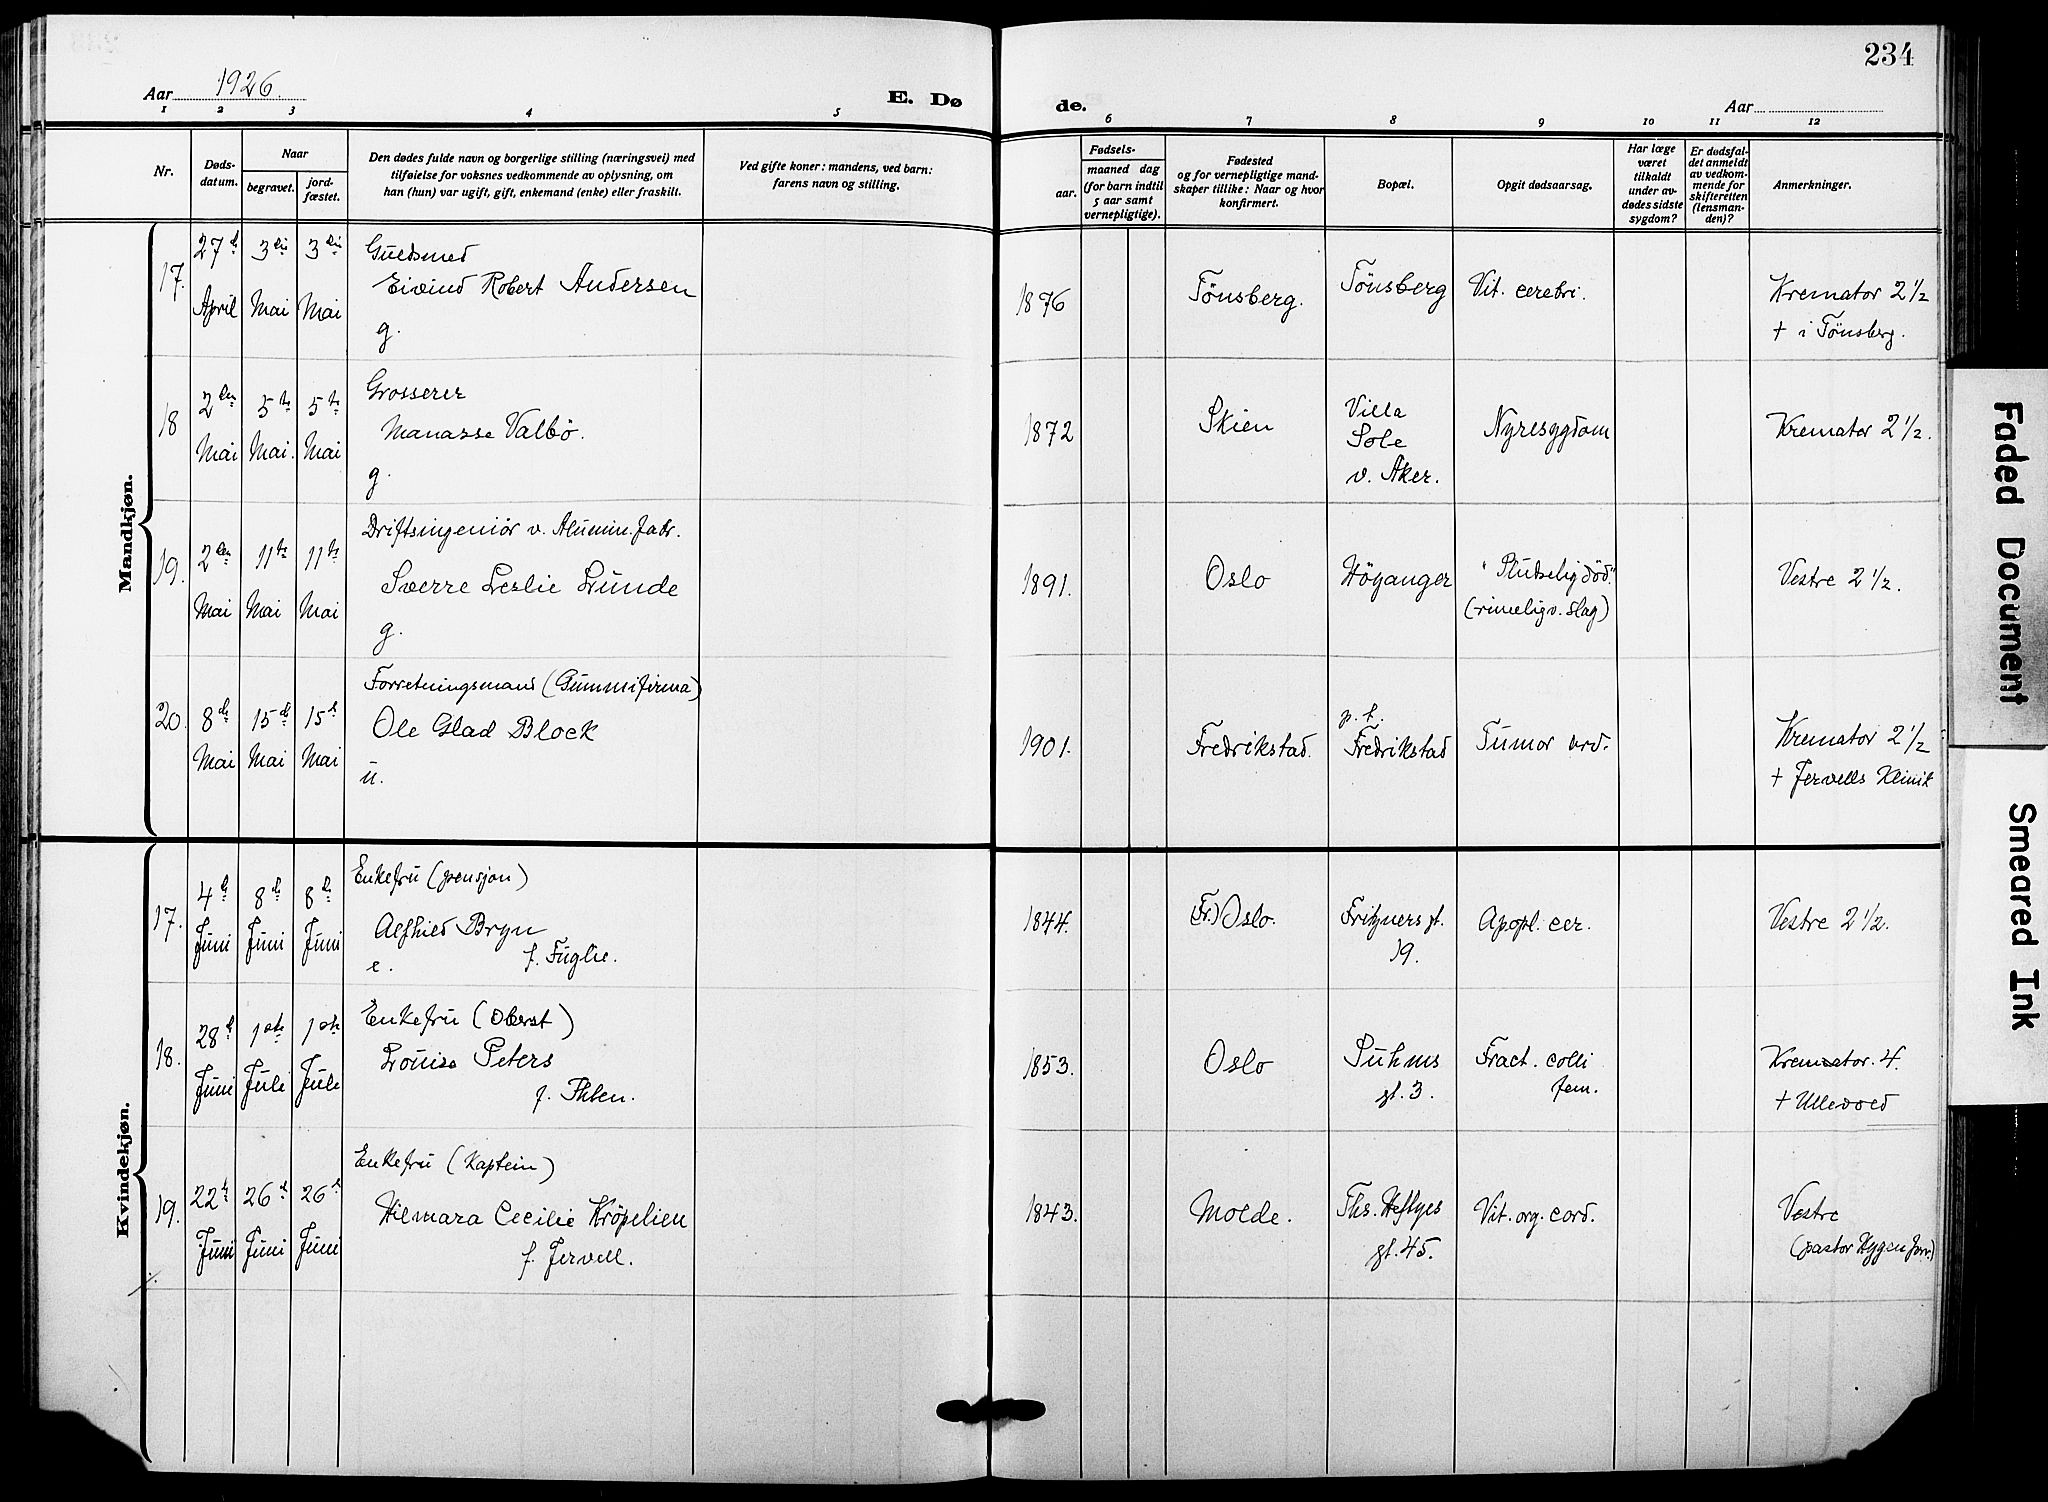 234
Aar 1926.
E. Dø
de.
Aar
1 2 3 4 5
6 7 8 9 10 11 12
Nr.
Døds-
datum.
Naar
begravet.
jord-
fæstet.
Den dødes fulde navn og borgerlige stilling (næringsvei) med
tilføielse for voksnes vedkommende av oplysning, om
han (hun) var ugift, gift, enkemand (enke) eller fraskilt.
Ved gifte koner: mandens, ved barn:
farens navn og stilling.
Fødsels-
aar.
maaned dag
(for barn indtil
5 aar samt
vernepligtige).
Fødested
og for vernepligtige mand-
skaper tillike: Naar og hvor
konfirmert.
Bopæl.
Opgit dødsaarsag.
Har læge
været
tilkaldt
under av-
dødes sidste
sygdom?
Er dødsfal-
det anmeldt
av vedkom-
mende for
skifteretten
(lensman-
den)?
Anmerkninger.
Mandkjøn.
17.
27de April
3die Mai
3die Mai
Guldsmed
Eivind Robert Andersen
g.
1876
Tönsberg.
Tönsberg
Vit. cerebri.
Kremator 2 1/2
† i Tönsberg.
18
2den Mai
5te Mai.
5te Mai
Grosserer
Manasse Valbö.
g.
1872
Skien
Villa
Sole
v. Aker.
Nyresygdom
Kremator 2 1/2.
19.
2den Mai
11te Mai
11te Mai
Driftsingeniör v. Alumin. fabr.
Sverre Leslie Lunde
g.
1891.
Oslo
Höyanger
"Plutselig död."
(rimeligv. slag)
Vestre 2 1/2.
20.
8de Mai
15de Mai
15de Mai
Forretningsmand (Gummifirma)
Ole Glad Block
u.
1901.
Fredrikstad.
p. t.
Fredrikstad
Tumor
Kremator 2 1/2
† Jervells Klinik
Kvindekjøn.
17.
4de Juni
8de Juni
8de Juni
Enkefru (pensjon)
Alfhild Bryn
e. f. Fuglie.
1844.
(Fr.) Oslo.
Fritzners gt.
19.
Apopl. cer.
Vestre 2 1/2.
18.
28de Juni
1ste Juli
1ste Juli
Enkefru (Oberst)
Louise Peters
f. Ihlen.
1853.
Oslo
Suhms
gt. 3.
Fract. colli
fem.
Kremator. 4.
† Ullevold
19.
22de Juni
26de Juni
26de Juni
Enkefru (Kaptein)
Hilmara Cecilie Kröpelien
f. Jervell.
1843.
Molde.
Ths. Heftyes
gt. 45.
Vit. org. cord.
Vestre
(pastor Hygen forr.)
Faded Document
Smeared Ink